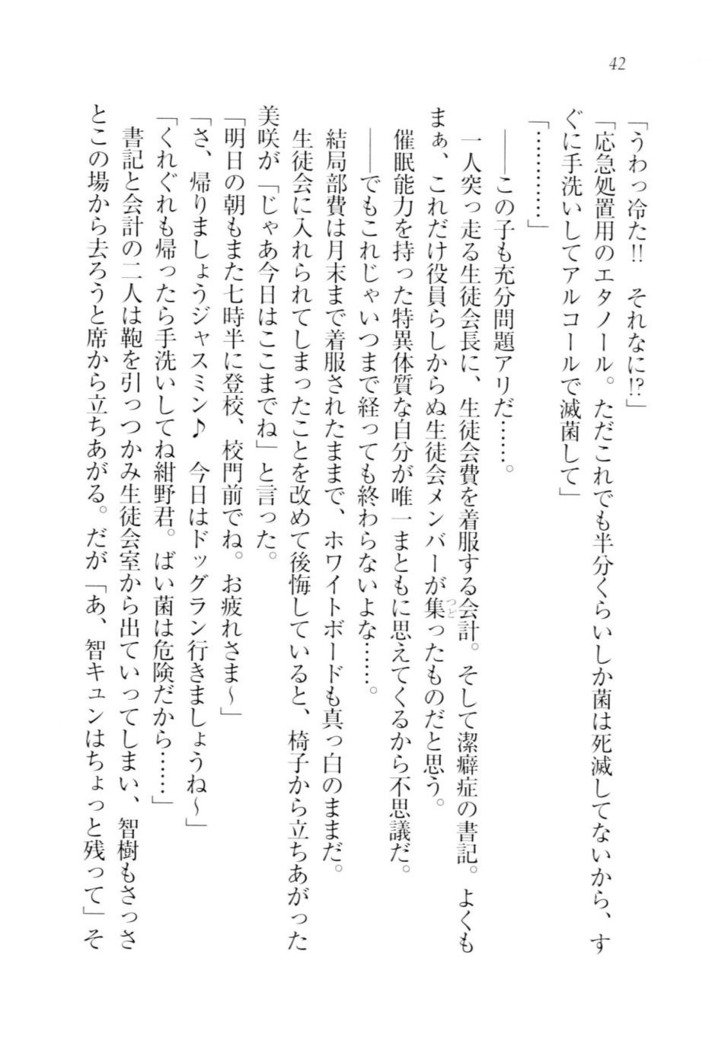 42
「うわっ冷た!!　それなに!?」
「応急処置用のエタノール。ただこれでも半分くらいしか菌は死滅してないから、す
ぐに手洗いしてアルコールで滅菌して」
「…………」
――この子も充分問題アリだ……。
一人突っ走る生徒会長に、生徒会費を着服する会計。そして潔癖症の書記。よくも
まぁ、これだけ役員らしからぬ生徒会メンバーが集ったものだと思う。
つど
催眠能力を持った特異体質な自分が唯一まともに思えてくるから不思議だ。
――でもこれじゃいつまで経っても終わらないよな……。
結局部費は月末まで着服されたままで、ホワイトボードも真っ白のままだ。
生徒会に入れられてしまったことを改めて後悔していると、椅子から立ちあがった
美咲が「じゃあ今日はここまでね」と言った。
「明日の朝もまた七時半に登校、校門前でね。お疲れさま～」
「さ、帰りましょうジャスミン♪　今日はドッグラン行きましょうね～」
「くれぐれも帰ったら手洗いしてね紺野君。ばい菌は危険だから……」
書記と会計の二人は鞄を引っつかみ生徒会室から出ていってしまい、智樹もさっさ
とこの場から去ろうと席から立ちあがる。だが「あ、智キュンはちょっと残って」そ